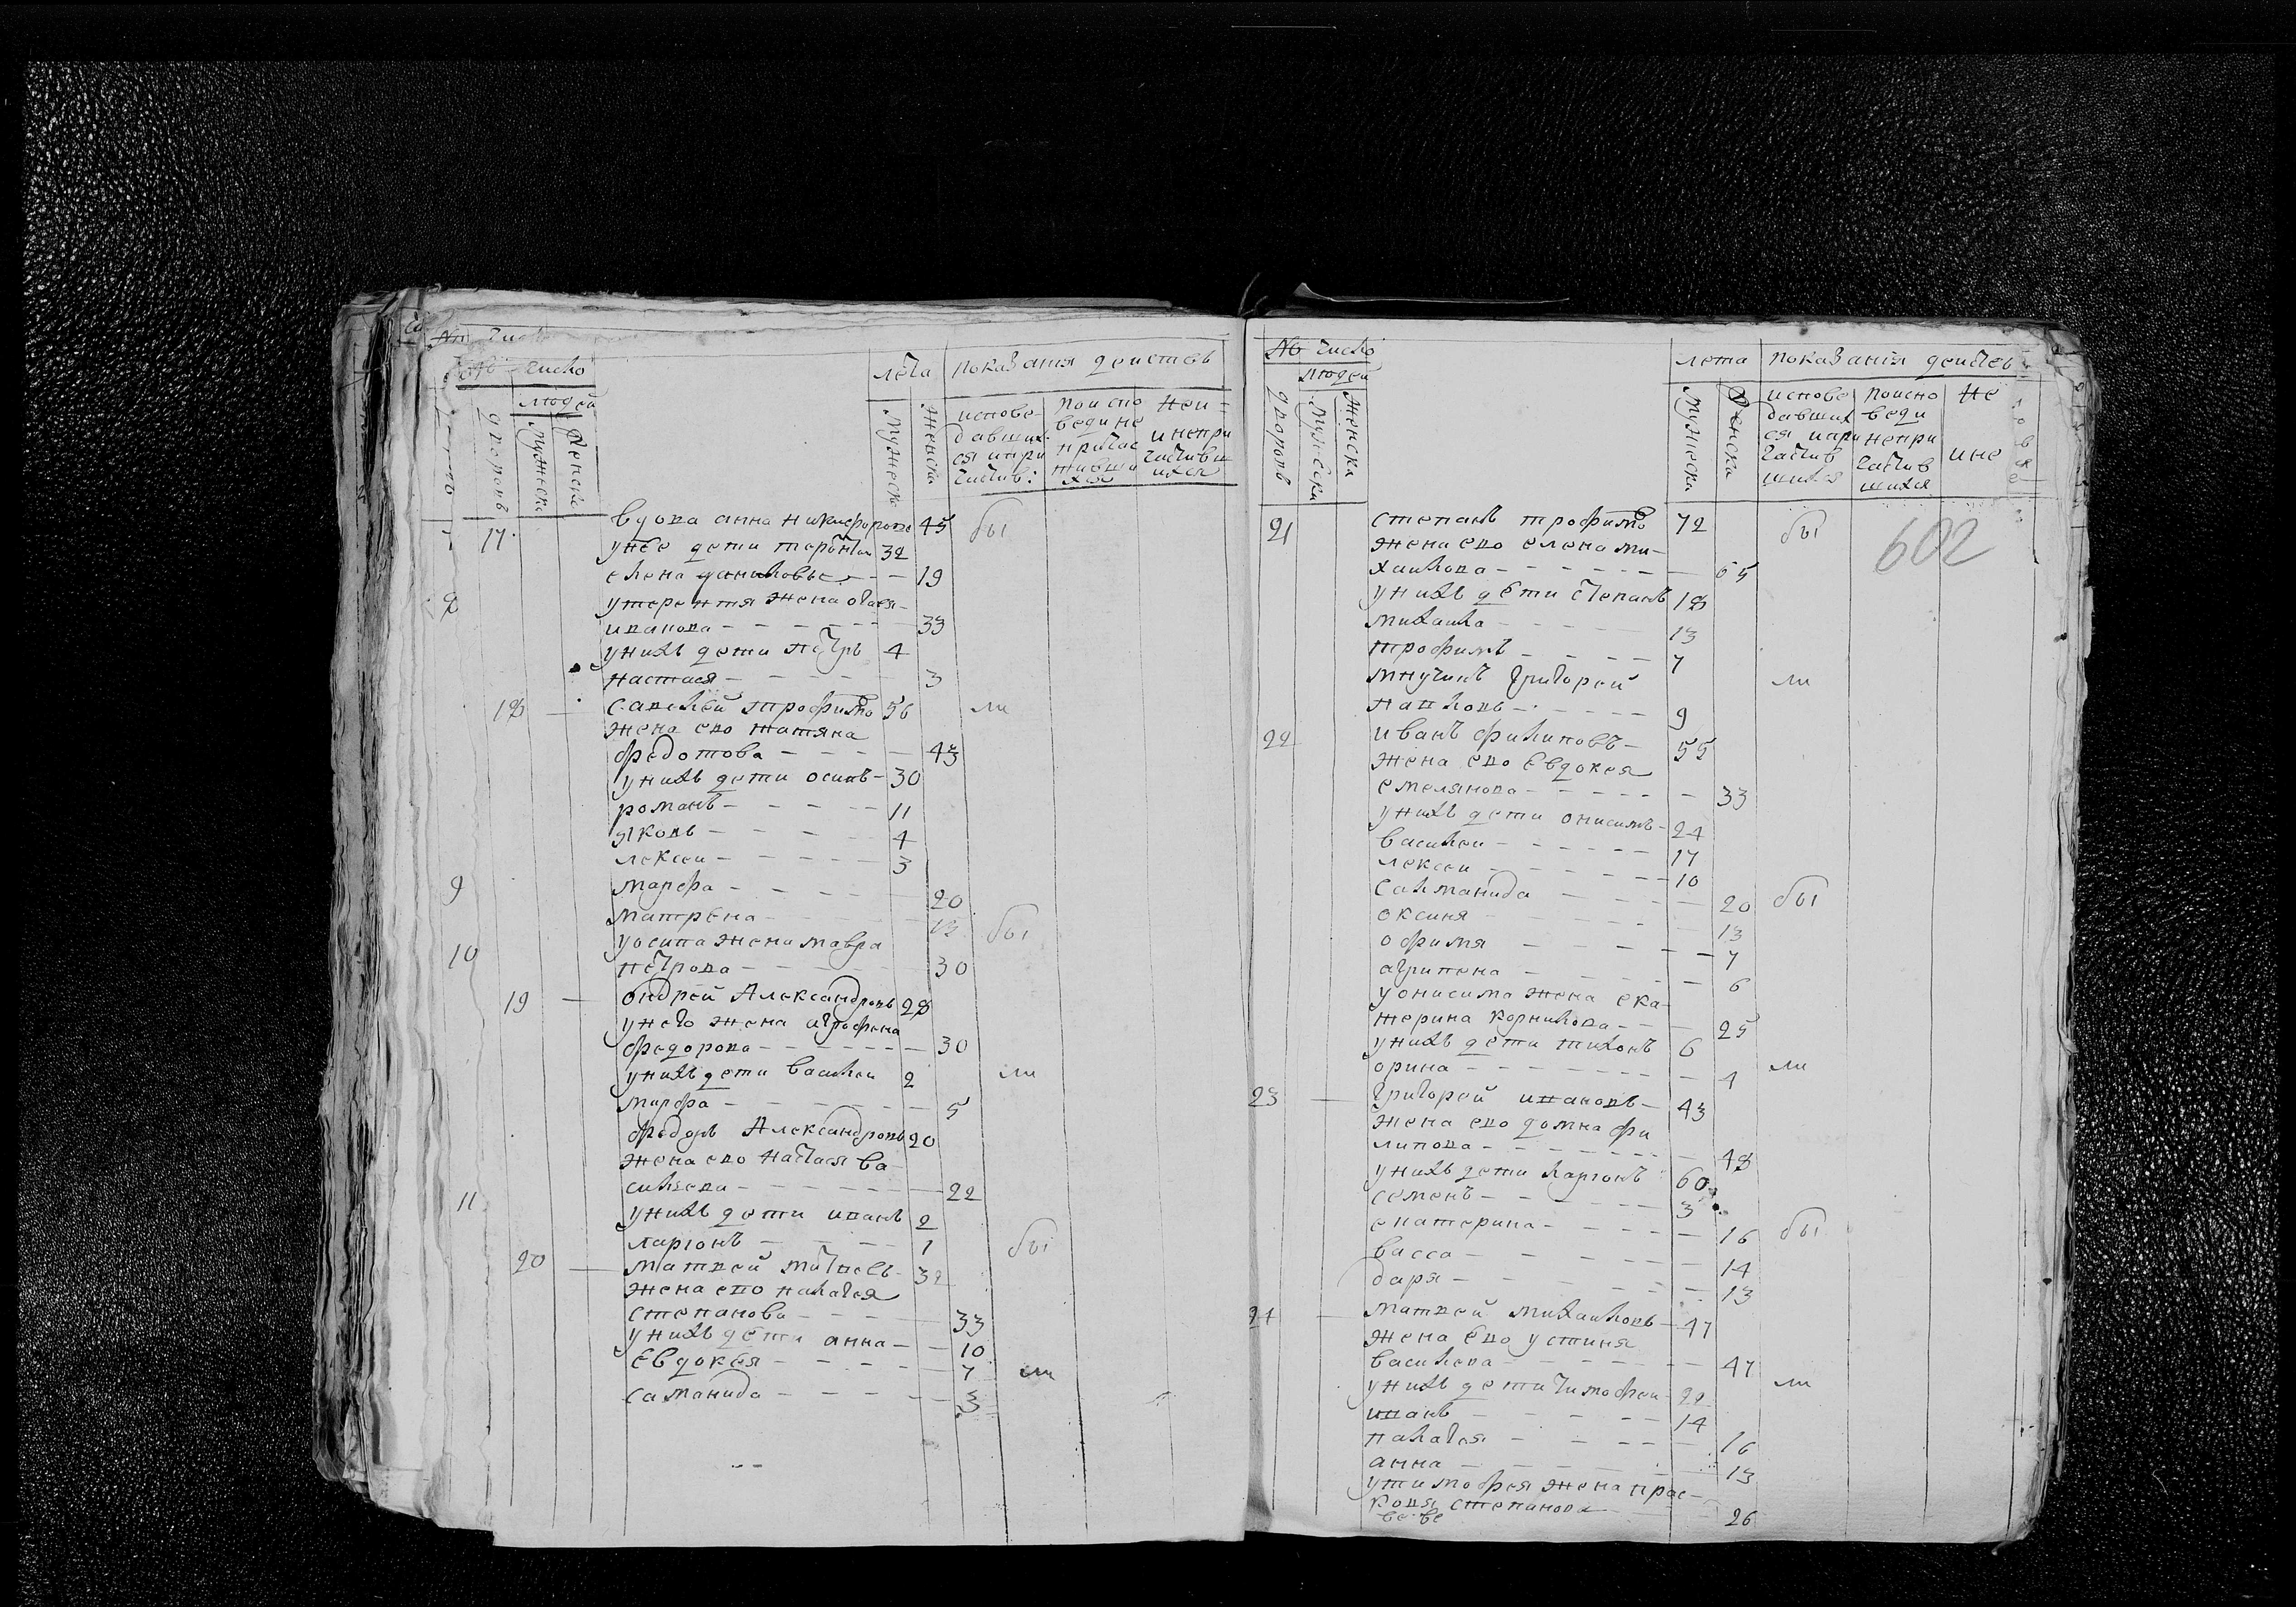 № число
людей
дворовъ
мужеска
женска
лета
мужеска
женска
показания действъ
исповедавшихся и причастив:
по исповеди не причастившихся
не и= и не причастившихся
17 вдова анна никифорова 45 бы
у нее дети терентеи 32
елена даниловы - - - 19
8 у терентя жена
иванова - - - - - - 33
у нихъ дети петръ 4
настася - - - - - 3
18 савелей трофимо 56 ли
жена ево татяна
федотова - - - - 43
у нихъ дети осипъ - 30
романъ - - - - - 11
яковъ - - - - - 4
лексеи - - - - - 3
9 марфа - - - - - 20
матрена - - - - - 13 бы
у осипа жена мавра
10 петрова - - - - - 30
19 ондрей Александровъ 28
у него жена агрофена
федорова - - - - - - 30
у нихъ дети василеи 2 ли
марфа - - - - - - 5
федоръ Александровъ 20
жена ево настася ва
силева - - - - - - 22
11 у нихъ дети иванъ 2
ларионъ - - - - 1 бы
20 матвей матвеевъ 32
жена ево палагея
степанова - - - 33
у нихъ дети анна - - 10
евдокея - - - - - 7 ли
саманида - - - - - 3
№ число
людей
дворовъ
мужеска
женска
лета
мужеска
женска
показания действъ
исповедавшихся и причастившихся
по исповеди не причастившихся
не
и не
602
21 степанъ трофимо 72 бы
жена ево елена ми-
хаилова - - - - - - 65
у нихъ дети степанъ 18
михаила - - - - 13
трофимъ - - - - 7
внучикъ григорей ли
павловъ - - - - - 9
22 иванъ филиповъ - 55
жена ево евдокея
емелянова - - - - - 33
у нихъ дети онисимъ - 24
василеи - - - - - - 17
лексеи - - - - - - 10
салманида - - - - 20 бы
оксиня - - - - - 13
офимя - - - - - 7
агрипена - - - - - 6
у онисима жена ека-
терина корнилова - - - 25
у нихъ дети тихонъ 6
орина - - - - - - - - 4 ли
23 григорей ивановъ - 43
жена ево домна фи
липова - - - - - - - 48
у нихъ дети ларионъ 60
семенъ - - - - - - 3
екатерина - - - - - - 16 бы
васса - - - - - - 14
даря - - - - - - 13
24 матвей михаиловъ - 47
жена ево устиня
василева - - - - - - 47
у нихъ дети тимофеи - 22 ли
иванъ - - - - - 14
палагея - - - - - 16
анна - - - - - - 13
у тимофея жена прас-
ковя степанова 26